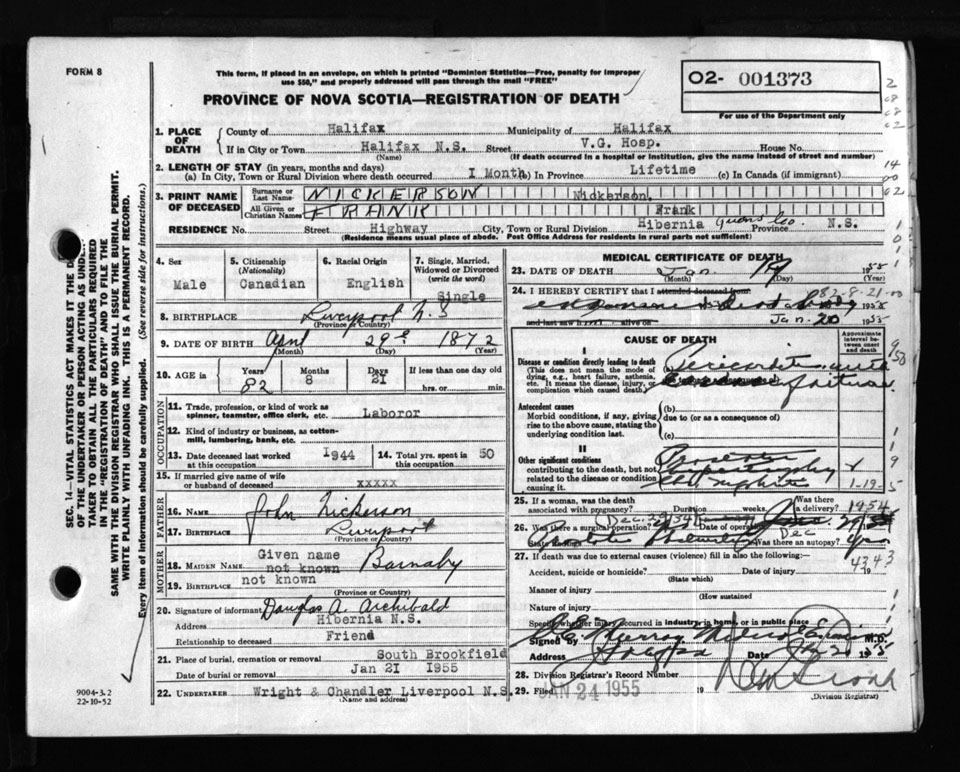 FORM 8
This form, if placed in an envelope, on which is printed "Dominion Statistics—Free, penalty for improper
use $50," and properly addressed will pass through the mail "FREE"
O2- 001373
PROVINCE OF NOVA SCOTIA—REGISTRATION OF DEATH
For use of the Department only
1. PLACE OF DEATH County of Halifax Municipality of Halifax
If in City or Town Halifax N.S. Street V.G. Hosp. House No.
(Name) (If death occurred in a hospital or institution, give the name instead of street and number)
2. LENGTH OF STAY (in years, months and days)
(a) In City, Town or Rural Division where death occurred I Month (b) In Province Lifetime (c) In Canada (if immigrant)
3. PRINT NAME OF DECEASED Surname or Last Name NICKERSON Nickerson,
All Given or Christian Names FRANK Frank
RESIDENCE No. Street Highway City, Town or Rural Division of Hibernia Queens Co Province N.S.
(Residence means usual place of abode. Post Office Address for residents in rural parts not sufficient)
4. Sex Male
5. Citizenship (Nationality) Canadian
6. Racial Origin English
7. Single, Married, Widowed or Divorced (write the word) Single
8. BIRTHPLACE Liverpool N.S
(Province or Country)
9. DATE OF BIRTH April 29 1872
(Month) (Day) (Year)
10. AGE in Years 82 Months 8 Days 21 If less than one day old hrs. or min.
OCCUPATION
11. Trade, profession or kind of work as spinner, teamster, office clerk, etc. Laboror
12. Kind of industry or business, as cotton-mill, lumbering, bank, etc.
13. Date deceased last worked at this occupation I944 14. Total yrs. spent in this occupation 50
15. If married give name of wife or husband of deceased xxxxx
FATHER
16. NAME John Nickerson
17. BIRTHPLACE Liverpool
(Province or Country)
MOTHER
Given name
18. MAIDEN NAME not known Barnaby
19. BIRTHPLACE not known
(Province or Country)
20. Signature of informant Douglas A. Archibald
Address Hibernia N.S.
Relationship to deceased Friend
21. Place of burial, cremation or removal South Brookfield
Date of burial or removal Jan 2I I955
22. UNDERTAKER Wright & Chandler Liverpool N.S.
(Name and address)
9004-3.2
22-10-52
MEDICAL CERTIFICATE OF DEATH
23. DATE OF DEATH Jan 19 1955
(Month) (Day)
24. I HEREBY CERTIFY that I attended deceased from
82-8-21
and last saw h alive on Jan-20 1955
CAUSE OF DEATH
Approximate interval between onset and death
I
Disease or condition directly leading to death
(This does not mean the mode of dying, e.g., heart failure, asthenia, etc. It means the disease, injury, or complication which caused death.)
Antecedent causes
Morbid conditions, if any, giving rise to the above cause, stating the underlying condition last.
(b)
due to (or as a consequence of)
(c)
II
Other significant conditions
contributing to the death, but not related to the disease or condition causing it.
1-19-5
25. If a woman, was the death associated with pregnancy? Duration weeks. Was there a delivery? 1954
26. Was there a surgical operation? Date of operation
State findings Was there an autopsy?
27. If death was due to external causes (violence) fill in also the following:— 4343
Accident, suicide or homicide? Date of injury 19
(State which)
Manner of injury
(How sustained
Nature of injury
Specify whether injury occurred in industry, in home, or in public place
Signed by M.D.
Address Halifax Date Jan 20 1955
28. Division Registrar's Record Number
29. Filed JAN 24 1955 19
(Division Registrar)
SEC. 14—VITAL STATISTICS ACT MAKES IT THE
OF THE UNDERTAKER OR PERSON ACTING AS UNDER-
TAKER TO OBTAIN ALL THE PARTICULARS REQUIRED
IN THE "REGISTRATION OF DEATH" AND TO FILE THE
SAME WITH THE DIVISION REGISTRAR WHO SHALL ISSUE THE BURIAL PERMIT.
WRITE PLAINLY WITH UNFADING INK. THIS IS A PERMANENT RECORD.
Every item of information should be carefully supplied. (See reverse side for instructions.)